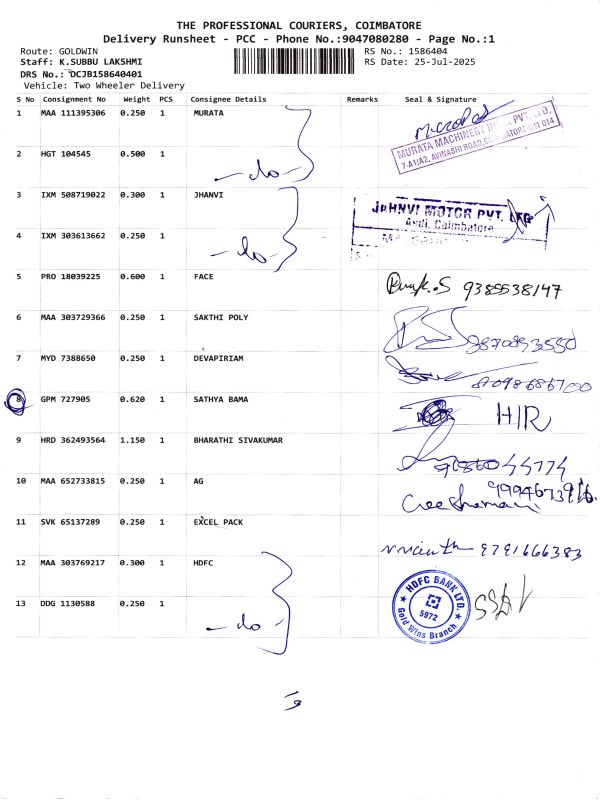 THE PROFESSIONAL COURIERS, COIMBATORE
Delivery Runsheet - PCC - Phone No.:9047080280 - Page No.:1
Route: GOLDWIN RS No.: 1586404
Staff: K.SUBBU LAKSHMI RS Date: 25-Jul-2025
DRS No.: DCJB158640401
Vehicle: Two Wheeler Delivery
S No Consignment No Weight PCS Consignee Details Remarks Seal & Signature
1 MAA 111395306 0.250 1 MURATA
MURATA MACHINERY INDIA PVT. LTD.
7-A1/A2, AVINASHI ROAD, COIMBATORE-641 014
2 HGT 104545 0.500 1
- do -
3 IXM 508719022 0.300 1 JHANVI
JAHNVI MOTOR PVT. LTD
Audi, Coimbatore
4 IXM 303613662 0.250 1
- do -
5 PRO 18039225 0.600 1 FACE
9385538147
6 MAA 303729366 0.250 1 SAKTHI POLY
9870893550
7 MYD 7388650 0.250 1 DEVAPIRIAM
8098686700
8 GPM 727905 0.620 1 SATHYA BAMA
H/R
9 HRD 362493564 1.150 1 BHARATHI SIVAKUMAR
10 MAA 652733815 0.250 1 AG
11 SVK 65137289 0.250 1 EXCEL PACK
9791666383
12 MAA 303769217 0.300 1 HDFC
HDFC BANK LTD.
5972
Gold Wins Branch
13 DDG 1130588 0.250 1
- do -